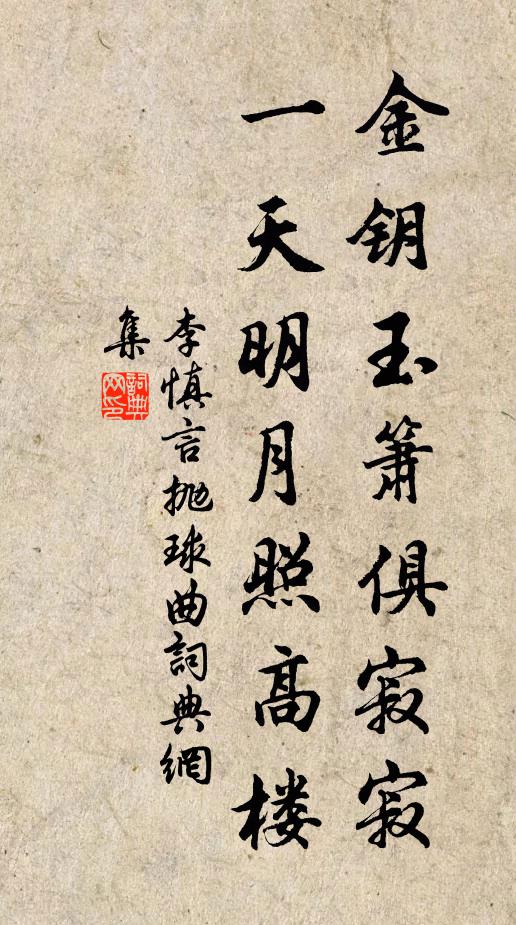 金钥玉箫俱寂寂
一天明月照高楼
李慎言抛球曲詞典網
集
詞典网印